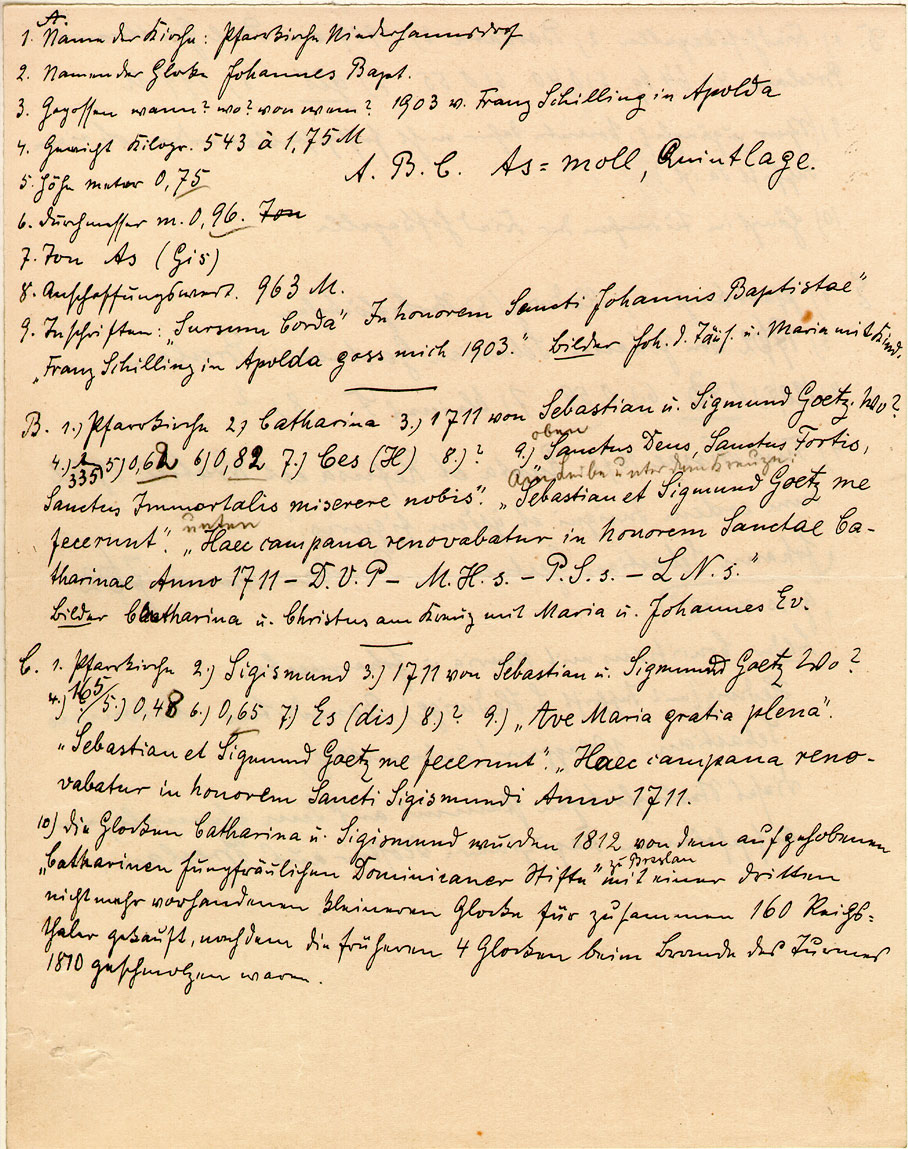 A.
1. Name der Kirche: Pfarrkirche Niederhannsdorf
2. Namen der Glocke Johannes Bapt.
3. Gegossen wann? wo? von wem? 1903 v. Franz Schilling in Apolda
4. Gewicht Kilogr. 543 à 1,75 M
A. B. C. As=moll, Quintlage.
5. Höhe meter 0,75
6. Durchmesser m. 0,96. Ton
7. Ton As (Gis)
8. Anschaffungswert. 963 M.
9. Inschriften: „Sursum Corda" In honorem Sancti Johannis Baptistae"
„Franz Schilling in Apolda goss mich 1903." Bilder Joh. d. Täuf. u. Maria mit Kind.
B. 1.) Pfarrkirche 2.) Catharina 3.) 1711 von Sebastian u. Sigmund Goetz. Wo?
oben
4.) 335 5) 0,62 6) 0,82 7.) Ces (H) 8.) ? 9.) „Sanctus Deus, Sanctus Fortis,
Am Leibe unter dem Kreuze:
Sanctus Immortalis miserere nobis". „Sebastian et Sigmund Goetz me
unten
fecerunt". „Haec campana renovabatur in honorem Sanctae Ca-
tharinae Anno 1711 – D. V. P – M. H. s. – P. S. s. – L N. s."
Bilder Catharina u. Christus am Kreuz mit Maria u. Johannes Ev.
C. 1. Pfarrkirche 2.) Sigismund 3.) 1711 von Sebastian u. Sigmund Goetz Wo?
4.) 165 5.) 0,48 6.) 0,65 7.) Es (dis) 8.) ? 9.) „Ave Maria gratia plena".
„Sebastian et Sigmund Goetz me fecerunt". „Haec campana reno-
vabatur in honorem Sancti Sigismundi Anno 1711.
10) Die Glocken Catharina u. Sigismund wurden 1812 von dem aufgehobenen
zu Breslau
„Catharinen Jungfräulichen Dominicaner Stifte" mit einer dritten
nicht mehr vorhandenen kleineren Glocke für zusammen 160 Reichs=
thaler gekauft, nachdem die früheren 4 Glocken beim Brande des Turmes
1810 geschmolzen waren.